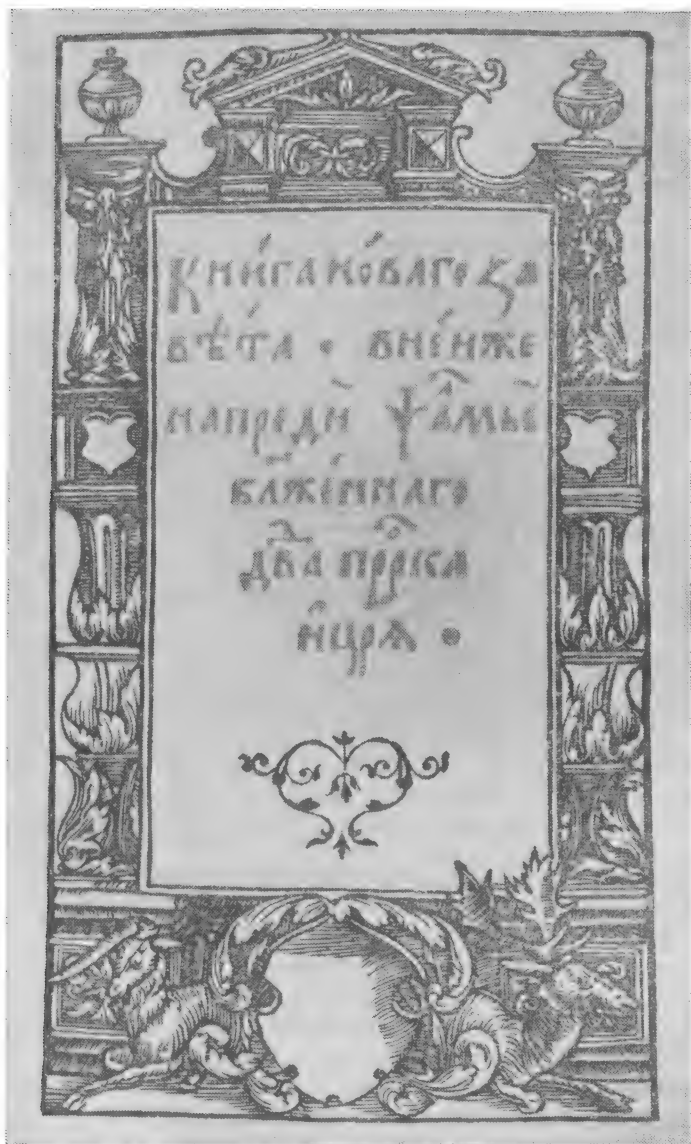 Кни́га но́ваго за
вѣ́та • вне́нже
напреди̾ ѱал҇мы҆
бл҃же́ннаго
дв҃да прⷪ҇рка
ѝцр҃ѧ •